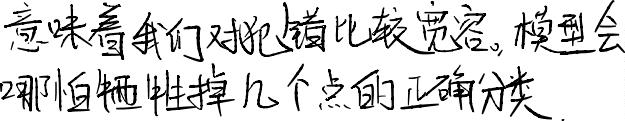 意味着我们对犯错比较宽容。模型会
哪怕牺牲掉几个点的正确分类.